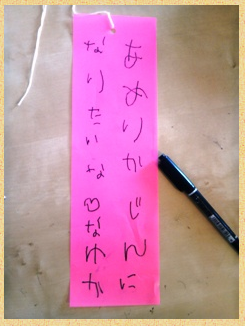 あめりかじんに
なりたいな♡なゆか